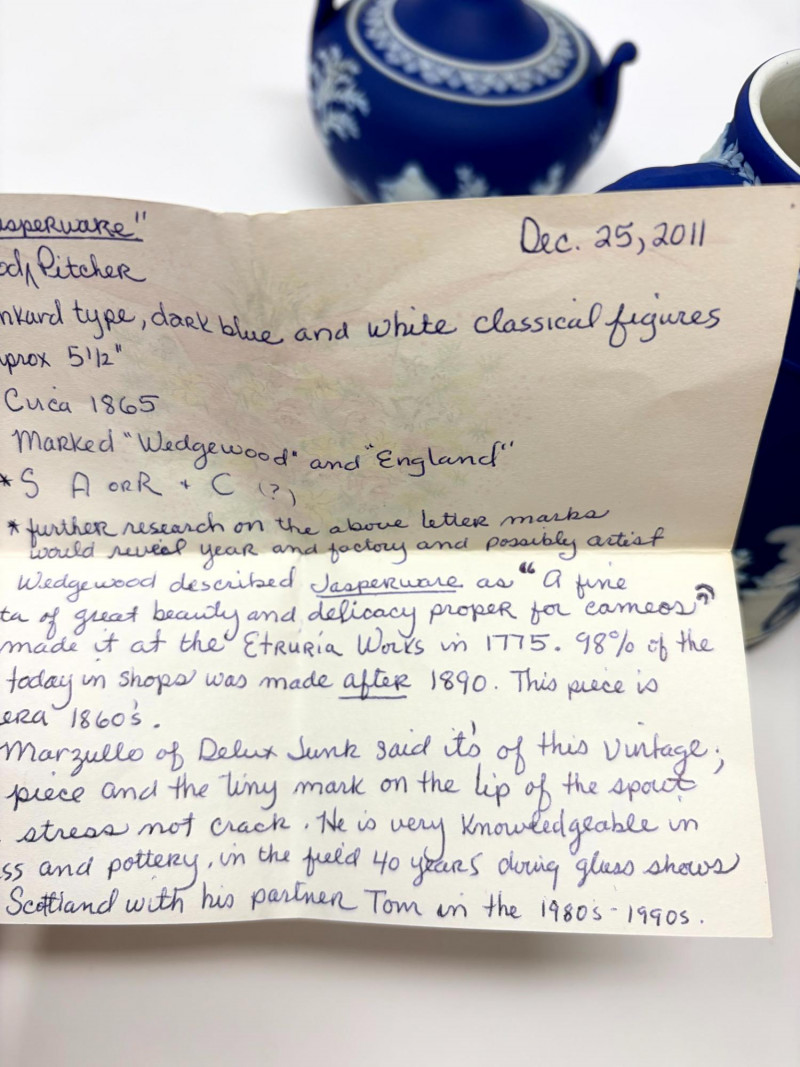 asperware"
Dec. 25, 2011
od Pitcher
nkard type, dark blue and white classical figures
prox 5 1/2"
Circa 1865
Marked "Wedgewood" and "England"
*S A or R + C (?)
*further research on the above letter marks
would reveal year and factory and possibly artist
Wedgewood described Jasperware as "A fine
ta of great beauty and delicacy proper for cameos"
made it at the Etruria Works in 1775. 98% of the
today in shops was made after 1890. This piece is
era 1860's.
Marzullo of Delux Junk said it's of this vintage;
piece and the tiny mark on the lip of the spout
stress not crack. He is very knowledgeable in
ss and pottery, in the field 40 years doing glass shows
Scotland with his partner Tom in the 1980's-1990s.